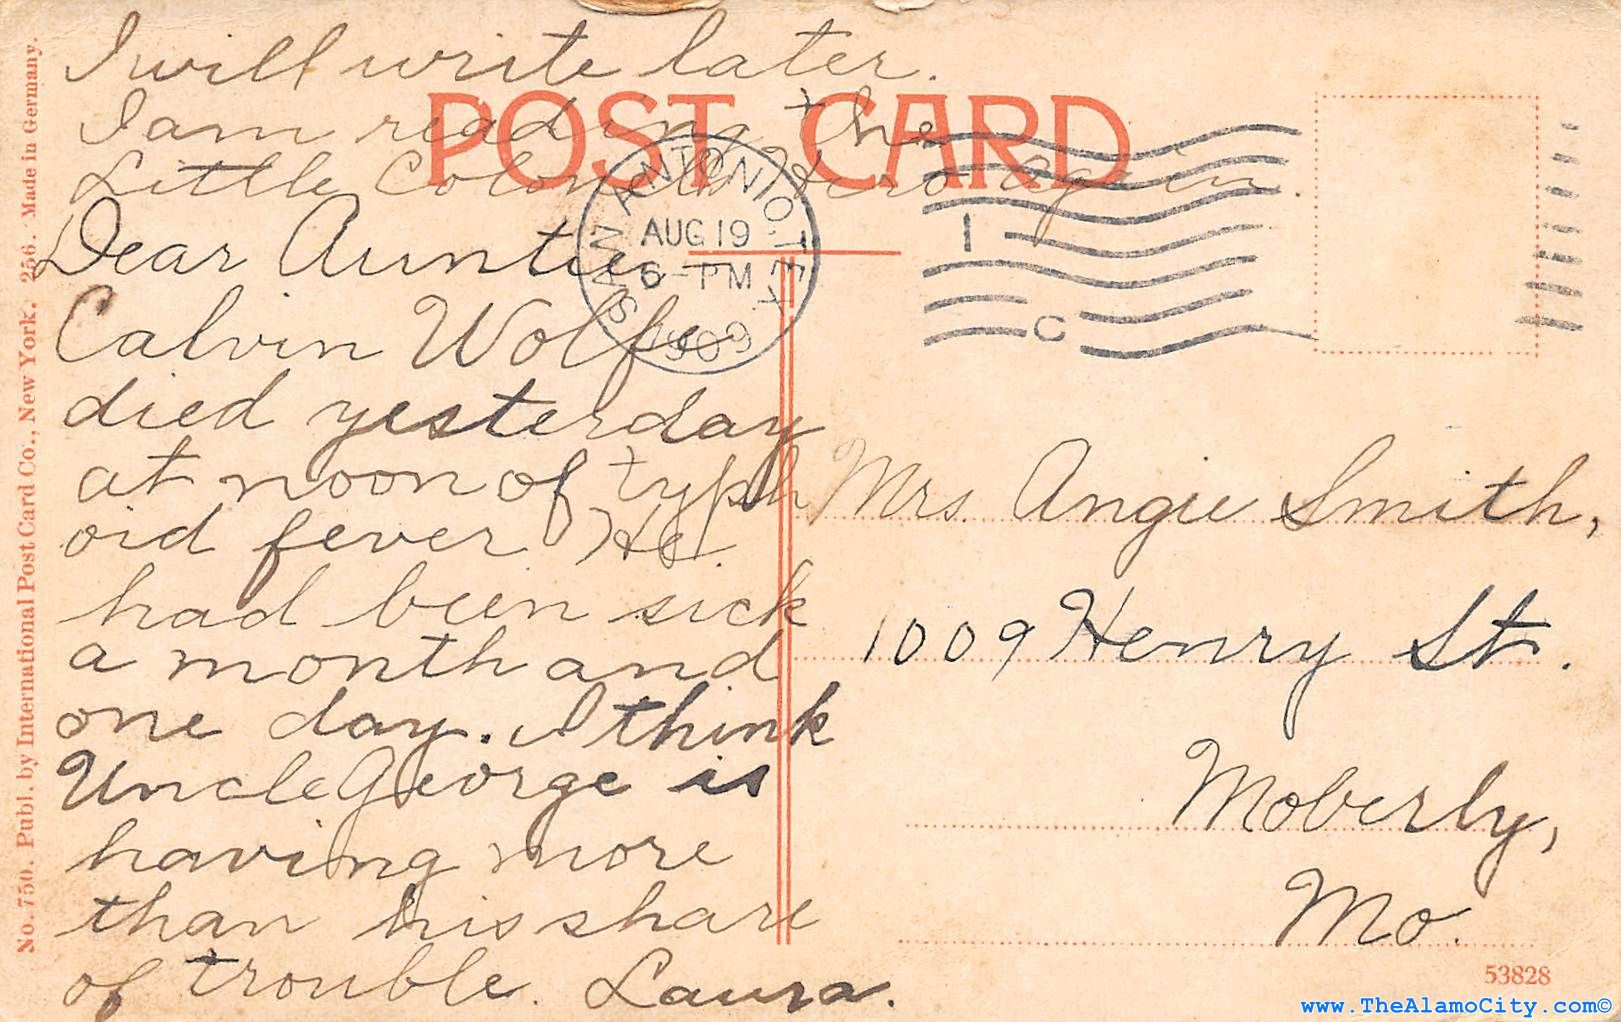 I will write later.
I am reading the
Little Colonel's Hero again.
POST CARD
Dear Auntie—
Calvin Wolfe
died yesterday
at noon of typh
oid fever. He
had been sick
a month and
one day. I think
Uncle George is
having more
than his share
of trouble. Laura.
SAN ANTONIO, TEX.
AUG 19
6-PM
1909
1
C
Mrs. Angie Smith,
1009 Henry St.
Moberly,
Mo.
No. 750. Publ. by International Post Card Co., New York. 256. Made in Germany.
53828
www.TheAlamoCity.com©